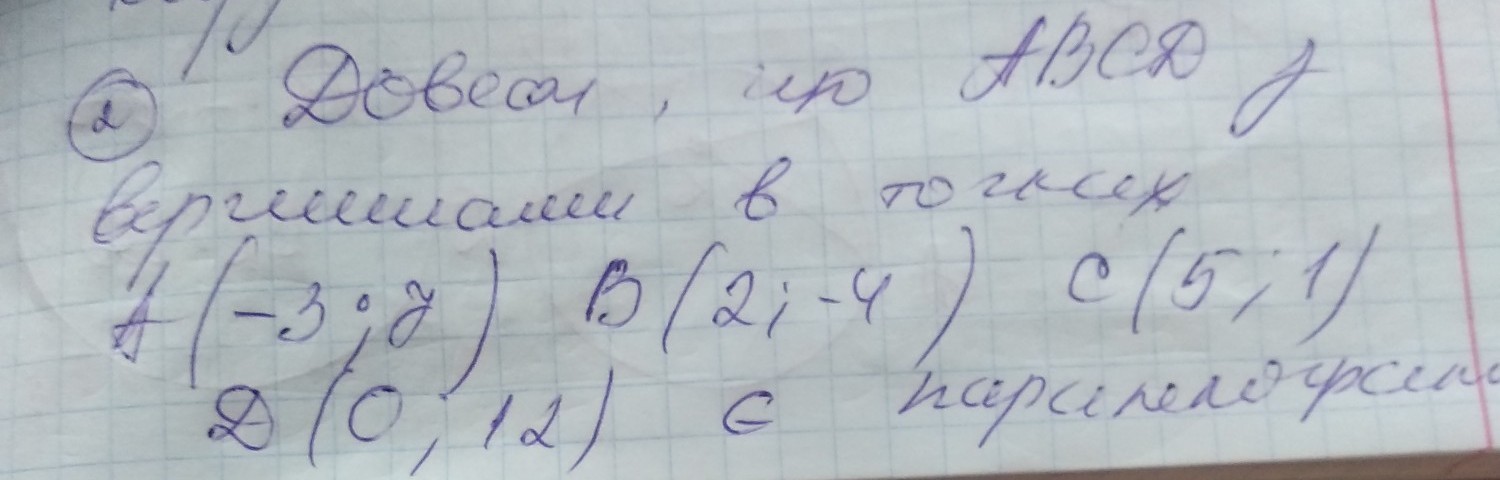 ② Довести, що ABCD з
вершинами в точках
A(-3; 7) B(2; -4) C(5; 1)
D(0; 12) є паралелограм